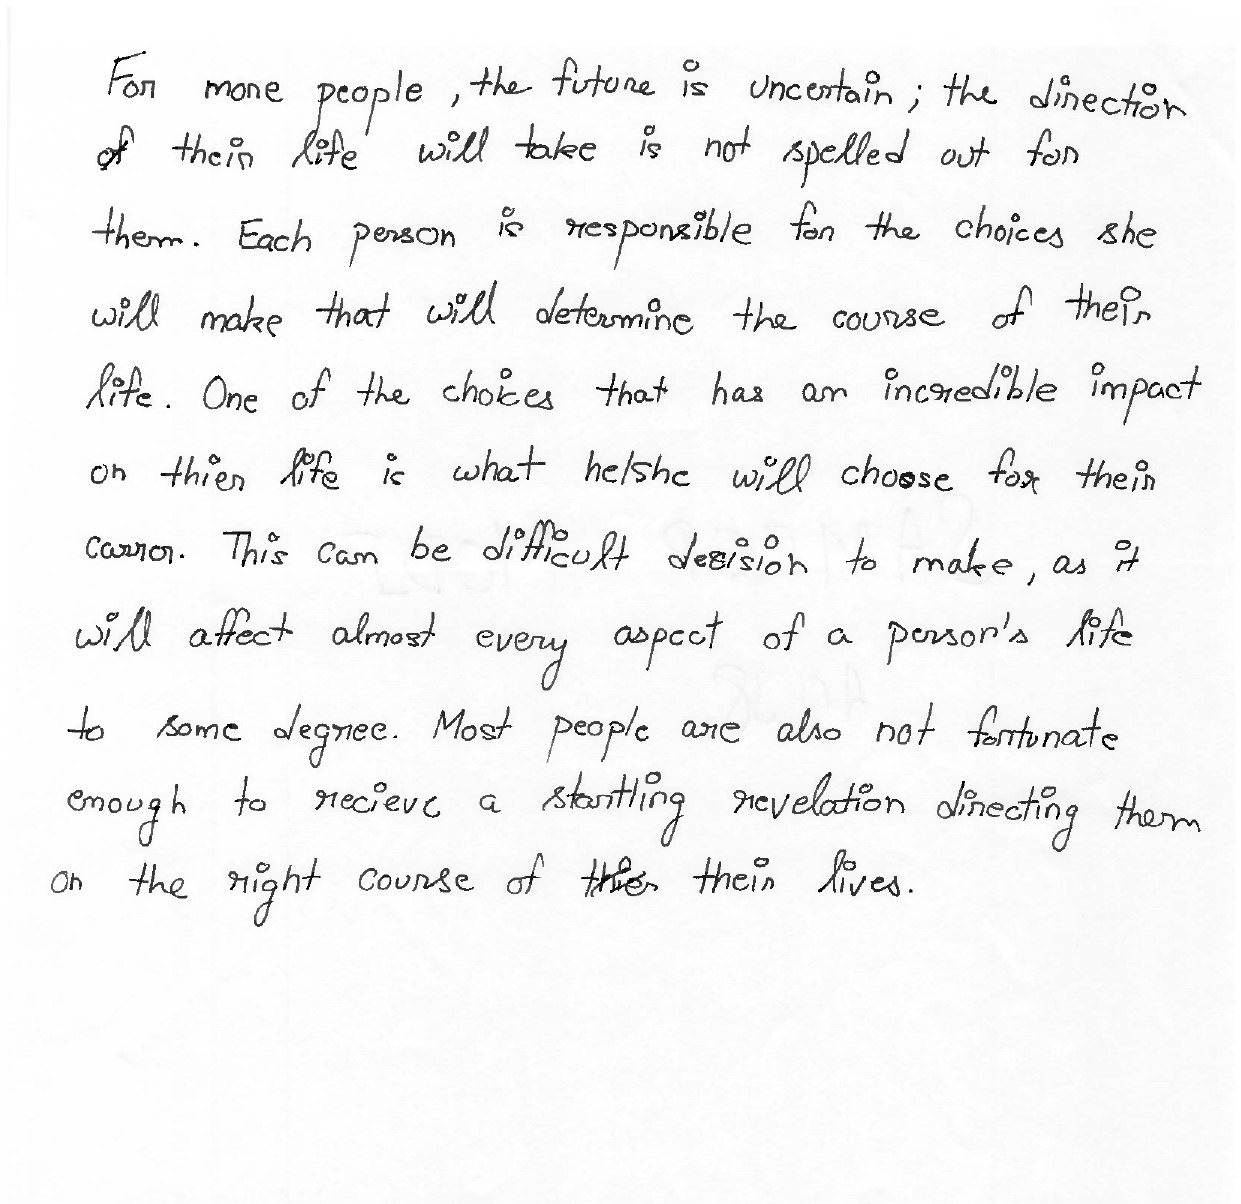 For more people, the future is uncertain; the direction
of their life will take is not spelled out for
them. Each person is responsible for the choices she
will make that will determine the course of their
life. One of the choices that has an incredible impact
on thier life is what he/she will choose for their
carror. This can be difficult desision to make, as it
will affect almost every aspect of a person's life
to some degree. Most people are also not fortunate
enough to recieve a startling revelation directing them
on the right course of their lives.